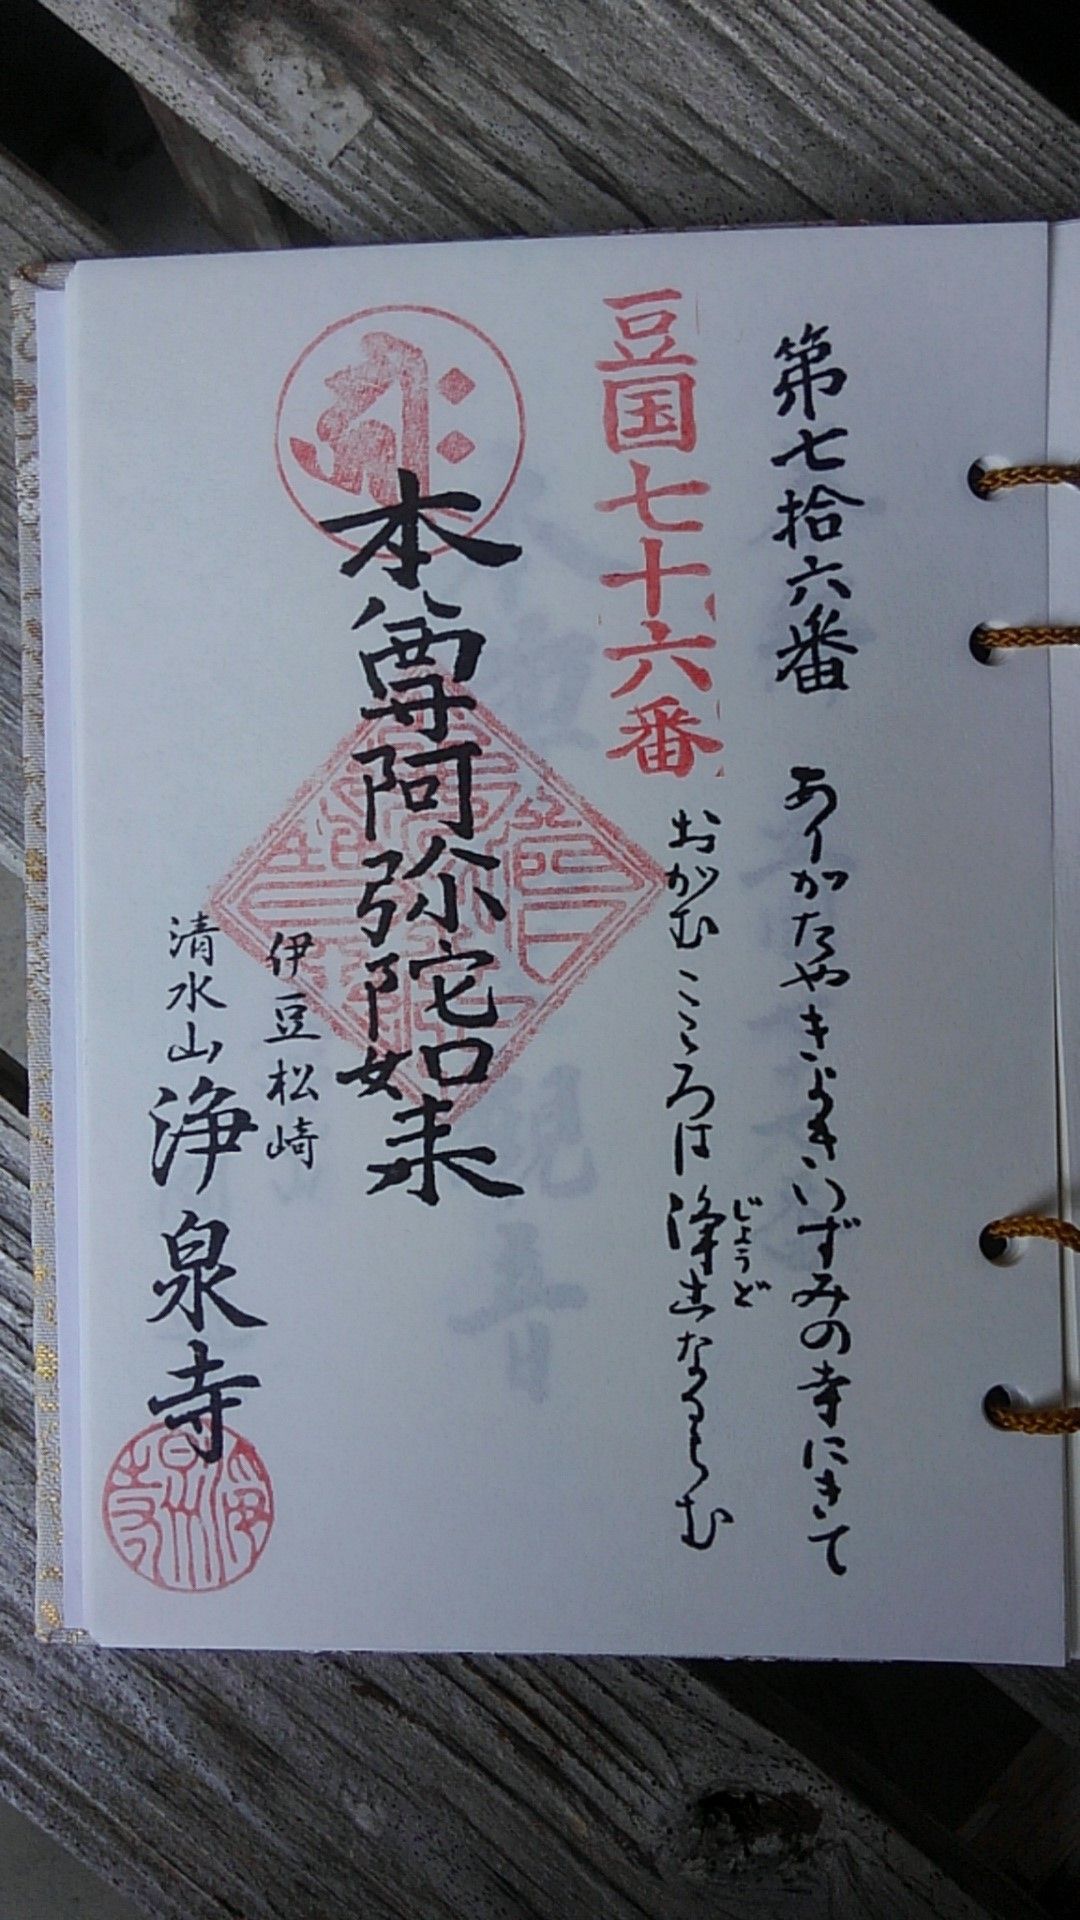 第七拾六番 ありがたやきよきいずみの寺にきて
おがむこころは浄土なるらむ
じょうど
豆国七十六番
本尊阿弥陀如来
伊豆松崎
清水山 浄泉寺